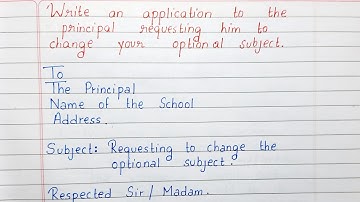 Write an application to the
principal requesting him to
change your optional subject.
To
The Principal
Name of the School
Address.
Subject: Requesting to change the
optional subject.
Respected Sir/Madam.